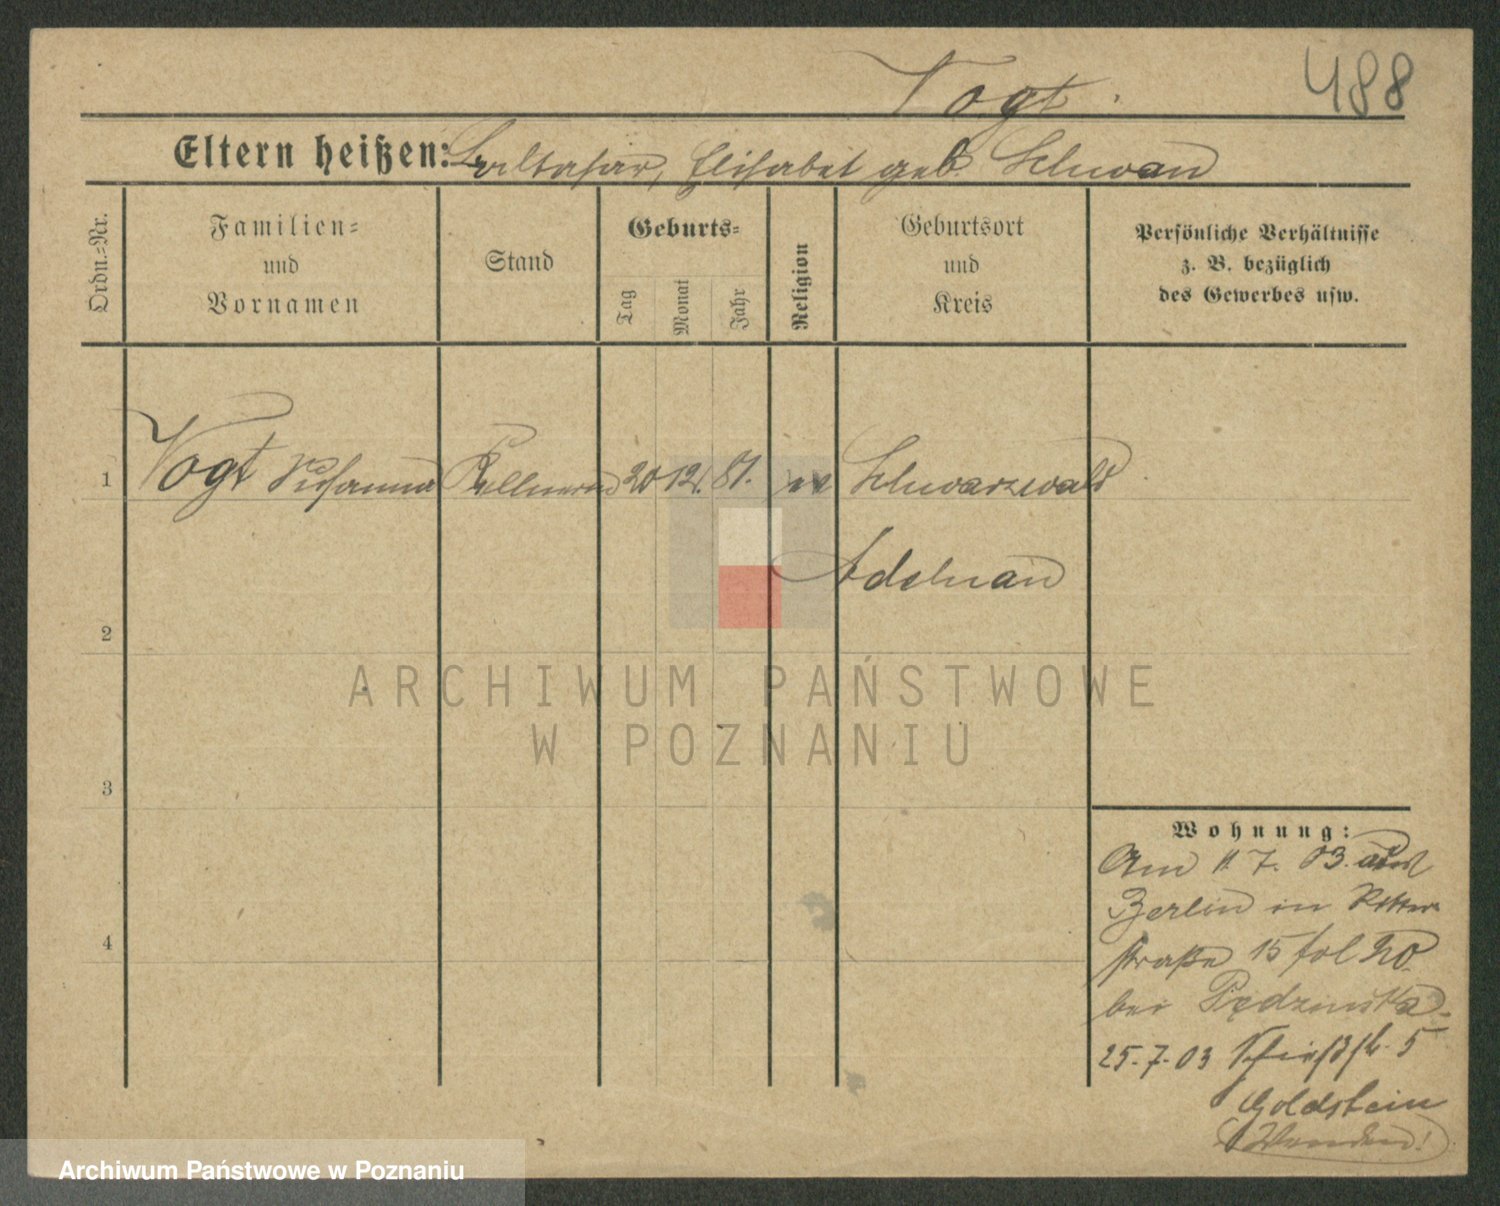 Vogt.
488
Eltern heißen: Baltasar, Elisabet geb. Schwan
Ordn.=Nr.
Familien=
und
Vornamen
Stand
Geburts=
Tag
Monat
Jahr
Religion
Geburtsort
und
Kreis
Persönliche Verhältnisse
z. B. bezüglich
des Gewerbes usw.
1
Vogt Susanna
Kellnerin
20
12.
81.
ev
Schwarzwald
Adelnau
2
3
4
Wohnung:
Am 11. 7. 03. aus
Berlin in Ritter
straße 15
bei
25.7.03 5
Goldstein
Wenden!
ARCHIWUM PAŃSTWOWE
W POZNANIU
Archiwum Państwowe w Poznaniu